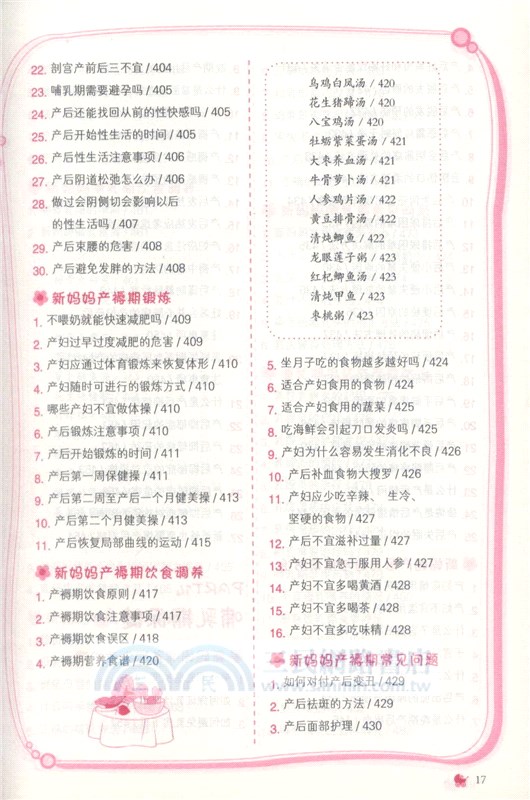 22. 剖宫产前后三不宜 / 404
23. 哺乳期需要避孕吗 / 405
24. 产后还能找回从前的性快感吗 / 405
25. 产后开始性生活的时间 / 405
26. 产后性生活注意事项 / 406
27. 产后阴道松弛怎么办 / 406
28. 做过会阴侧切会影响以后
的性生活吗 / 407
29. 产后束腰的危害 / 408
30. 产后避免发胖的方法 / 408
新妈妈产褥期锻炼
1. 不喂奶就能快速减肥吗 / 409
2. 产妇过早过度减肥的危害 / 409
3. 产妇应通过体育锻炼来恢复体形 / 410
4. 产妇随时可进行的锻炼方式 / 410
5. 哪些产妇不宜做体操 / 410
6. 产后锻炼注意事项 / 410
7. 产后开始锻炼的时间 / 411
8. 产后第一周保健操 / 411
9. 产后第二周至产后一个月健美操 / 413
10. 产后第二个月健美操 / 413
11. 产后恢复局部曲线的运动 / 415
新妈妈产褥期饮食调养
1. 产褥期饮食原则 / 417
2. 产褥期饮食注意事项 / 417
3. 产褥期饮食误区 / 418
4. 产褥期营养食谱 / 420
乌鸡白凤汤 / 420
花生猪蹄汤 / 420
八宝鸡汤 / 420
牡蛎紫菜蛋汤 / 421
大枣养血汤 / 421
牛骨萝卜汤 / 421
人参鸡片汤 / 422
黄豆排骨汤 / 422
清炖鲫鱼 / 422
龙眼莲子粥 / 423
红杞鲫鱼汤 / 423
清炖甲鱼 / 423
枣桃粥 / 423
5. 坐月子吃的食物越多越好吗 / 424
6. 适合产妇食用的食物 / 424
7. 适合产妇食用的蔬菜 / 425
8. 吃海鲜会引起刀口发炎吗 / 425
9. 产妇为什么容易发生消化不良 / 426
10. 产后补血食物大搜罗 / 426
11. 产妇应少吃辛辣、生冷、
坚硬的食物 / 427
12. 产后不宜滋补过量 / 427
13. 产妇不宜急于服用人参 / 427
14. 产妇不宜多喝黄酒 / 428
15. 产妇不宜多喝茶 / 428
16. 产妇不宜多吃味精 / 428
新妈妈产褥期常见问题
1. 如何对付产后变丑 / 429
2. 产后祛斑的方法 / 429
3. 产后面部护理 / 430
17